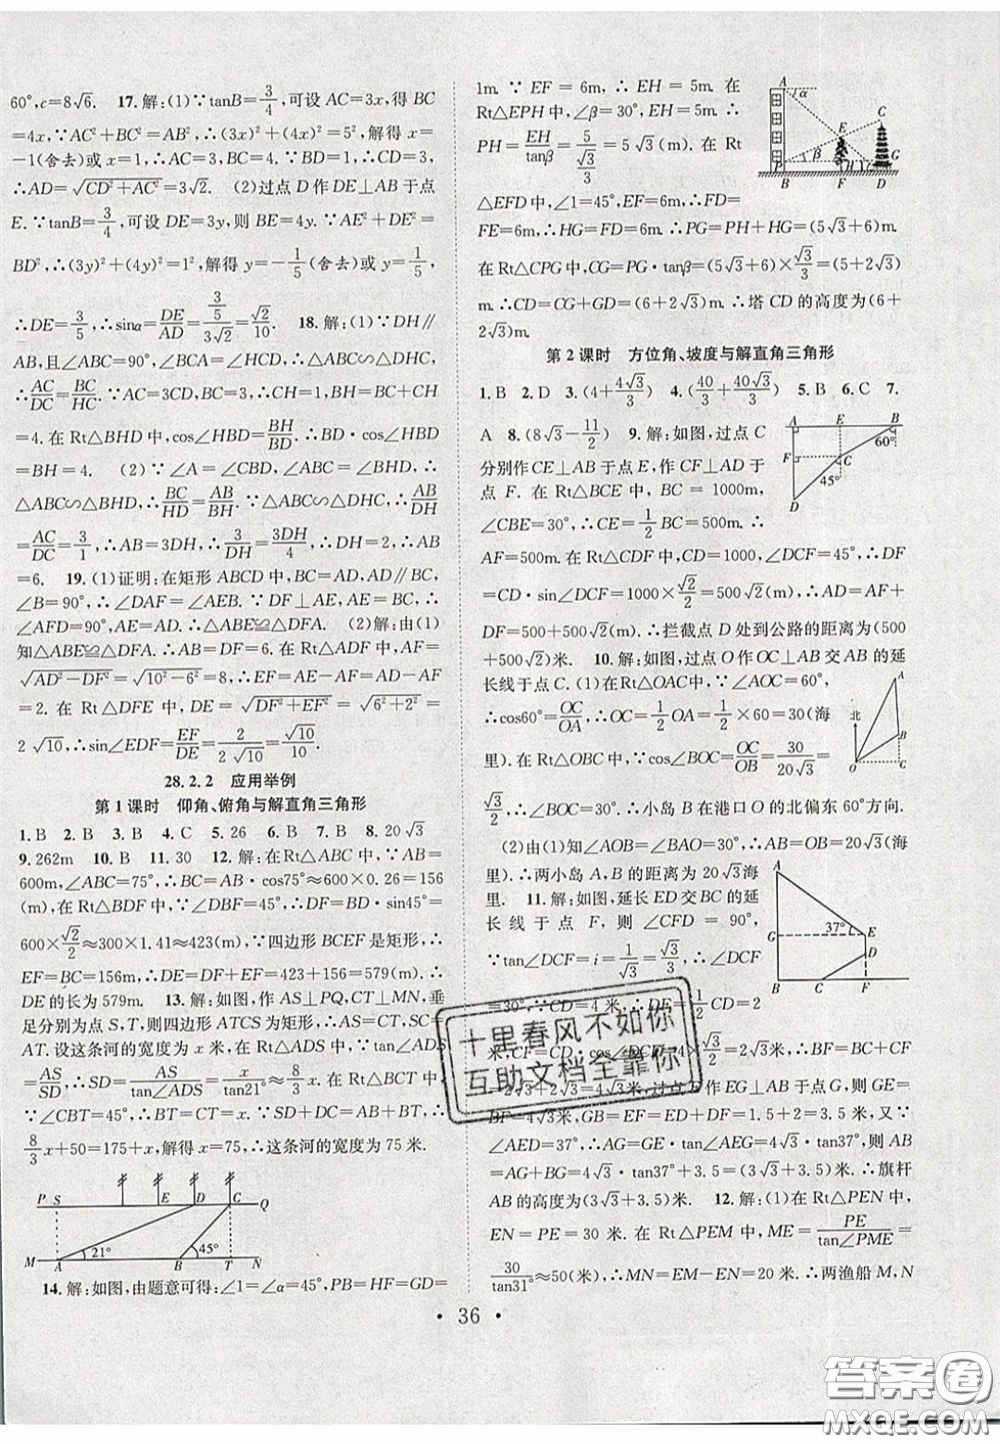 60°,c=8√6. 17.解:(1)∵tanB=3/4,可设 AC=3x,得 BC
=4x,∵AC²+BC²=AB²,∴(3x)²+(4x)²=5²,解得 x=
-1(舍去)或 x=1,∴AC=3,BC=4.∵BD=1,∴CD=3,
∴AD=√(CD²+AC²)=3√2. (2)过点 D 作 DE⊥AB 于点
E.∵tanB=3/4,可设 DE=3y,则 BE=4y.∵AE²+DE²=
BD²,∴(3y)²+(4y)²=1²,解得 y=-1/5(舍去)或 y=1/5,
∴DE=3/5,∴sinα=DE/AD=(3/5)/(3√2)=√2/10. 18.解:(1)∵DH∥
AB,且∠ABC=90°,∴∠ABC=∠HCD,∴△ABC∽△DHC,
∴AC/DC=BC/HC.∵AC=3CD,BC=3,∴CH=1,∴BH=BC+CH
=4.在 Rt△BHD 中,cos∠HBD=BH/BD.∴BD·cos∠HBD
=BH=4. (2)∵∠A=∠CBD,∠ABC=∠BHD,∴
△ABC∽△BHD,∴BC/HD=AB/BH.∵△ABC∽△DHC,∴AB/DH
=AC/DC=3/1,∴AB=3DH,∴3/DH=3DH/4,∴DH=2,∴AB
=6. 19.(1)证明:在矩形 ABCD 中,BC=AD,AD∥BC,
∠B=90°,∴∠DAF=∠AEB.∵DF⊥AE,AE=BC,∴
∠AFD=90°,AE=AD.∴△ABE≌△DFA. (2)解:由(1)
知△ABE≌△DFA.∴AB=DF=6.在 Rt△ADF 中,AF=
√(AD²-DF²)=√(10²-6²)=8,∴EF=AE-AF=AD-AF
=2.在 Rt△DFE 中,DE=√(DF²+EF²)=√(6²+2²)=
2√10,∴sin∠EDF=EF/DE=2/(2√10)=√10/10.
28.2.2 应用举例
第 1 课时 仰角、俯角与解直角三角形
1.B 2.B 3.B 4.C 5.26 6.B 7.B 8.20√3
9.262m 10.B 11.30 12.解:在Rt△ABC 中,∵AB=
600m,∠ABC=75°,∴BC=AB·cos75°≈600×0.26=156
(m),在Rt△BDF 中,∵∠DBF=45°,∴DF=BD·sin45°=
600×√2/2≈300×1.41=423(m),∵四边形 BCEF 是矩形,∴
EF=BC=156m,∴DE=DF+EF=423+156=579(m).∴
DE的长为 579m. 13.解:如图,作 AS⊥PQ,CT⊥MN,垂
足分别为点 S,T,则四边形 ATCS 为矩形,∴AS=CT,SC=
AT.设这条河的宽度为 x 米,在 Rt△ADS 中,∵tan∠ADS=
AS/SD,∴SD=AS/tan∠ADS=x/tan21°≈8/3x.在 Rt△BCT 中,
∵∠CBT=45°,∴BT=CT=x,∵SD+DC=AB+BT,∴
8/3x+50=175+x,解得 x=75,∴这条河的宽度为 75 米.
P S E D C Q
M A 21° B 45° T N
14.解:如图,由题意可得:∠1=∠α=45°,PB=HF=GD=
1m.∵EF=6m,∴EH=5m.在
Rt△EPH 中,∠β=30°,EH=5m.∴
PH=EH/tanβ=5/(√3/3)=5√3(m).在 Rt
△EFD中,∠1=45°,EF=6m,∴FD=
FE=6m,∴HG=FD=6m.∴PG=PH+HG=(5√3+6)m.
在 Rt△CPG 中,CG=PG·tanβ=(5√3+6)×√3/3=(5+2√3)
m.∴CD=CG+GD=(6+2√3)m.∴塔 CD 的高度为(6+
2√3)m.
A α E C P β H 1 G B F D
第 2 课时 方位角、坡度与解直角三角形
1.B 2.D 3.(4+4√3/3) 4.(40/3+40√3/3) 5.B 6.C 7.
A 8.(8√3-11/2) 9.解:如图,过点 C
分别作 CE⊥AB 于点 E,作 CF⊥AD 于
点 F.在 Rt△BCE 中,BC=1000m,
∠CBE=30°,∴CE=1/2BC=500m.∴
AF=500m.在 Rt△CDF 中,CD=1000,∠DCF=45°,∴DF
=CD·sin∠DCF=1000×√2/2=500√2(m),∴AD=AF+
DF=500+500√2(m).∴拦截点 D 处到公路的距离为(500
+500√2)米. 10.解:如图,过点 O 作 OC⊥AB 交 AB 的延
长线于点 C.(1)在Rt△OAC 中,∵∠AOC=60°,
∴cos60°=OC/OA=1/2,∴OC=1/2OA=1/2×60=30(海
里).在 Rt△OBC 中,∵cos∠BOC=OC/OB=30/(20√3)
=√3/2,∴∠BOC=30°,∴小岛 B 在港口 O 的北偏东 60°方向.
(2)由(1)知∠AOB=∠BOC=30°,∴AB=OB=20√3(海
里).∴两小岛 A,B 的距离为 20√3海
里. 11.解:如图,延长 ED 交 BC 的延
长线于点 F,则∠CFD=90°,
∵tan∠DCF=i=1/√3=√3/3,∴∠DCF
=30°,∵CD=4 米,∴DE=1/2CD=2
米,CF=CD·cos∠DCF=4×√3/2=2√3米.∴BF=BC+CF
=2√3+2√3=4√3米.过点 E 作 EG⊥AB 于点 G,则GE=
BF=4√3米,GB=EF=ED+DF=1.5+2=3.5米.又∵
∠AED=37°,∴AG=GE·tan∠AEG=4√3·tan37°米,则 AB
=AG+BG=4√3·tan37°+3.5=(3√3+3.5)米,∴旗杆
AB 的高度为(3√3+3.5)米. 12.解:(1)在 Rt△PEN 中,
EN=PE=30 米.在 Rt△PEM 中,ME=PE/tan∠PME=
30/tan31°≈50(米),∴MN=EM-EN=20 米.∴两渔船 M,N
A E B 60° F C 45° D
北 A B O C
A G 37° E D B C F
十里春风不如你
互助文档全靠你
· 36 ·
答案圈
MXQE.COM